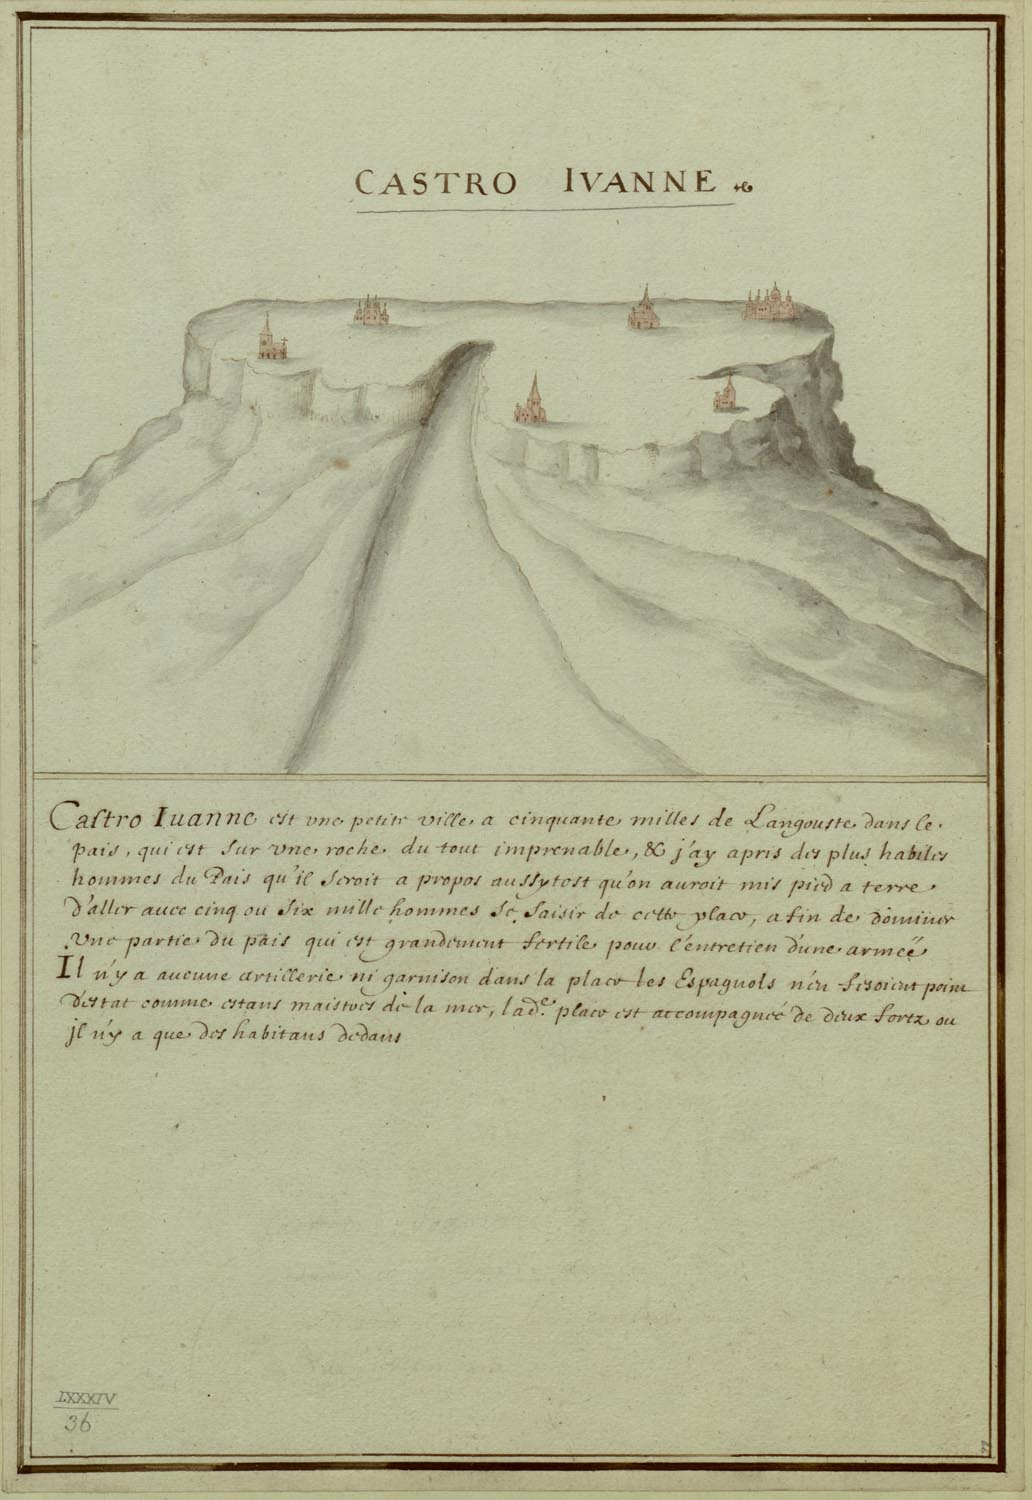 CASTRO IVANNE
Castro Iuanne est vne petite ville a cinquante milles de Langouste dans le
païs, qui est sur vne roche du tout imprenable, & j'ay apris des plus habiles
hommes du Païs qu'il seroit a propos aussytost qu'on auroit mis pied a terre
d'aller auec cinq ou six mille hommes se saisir de cette place, afin de dominer
vne partie du païs qui est grandement fertile pour l'entretien d'une armeé
Il n'y a aucune artillerie ni garnison dans la place les Espagnols n'en fesoient point
d'estat comme estans maistres de la mer, lad.e place est accompagneé de deux fortz ou
jl n'y a que des habitans dedans
LXXXIV
36